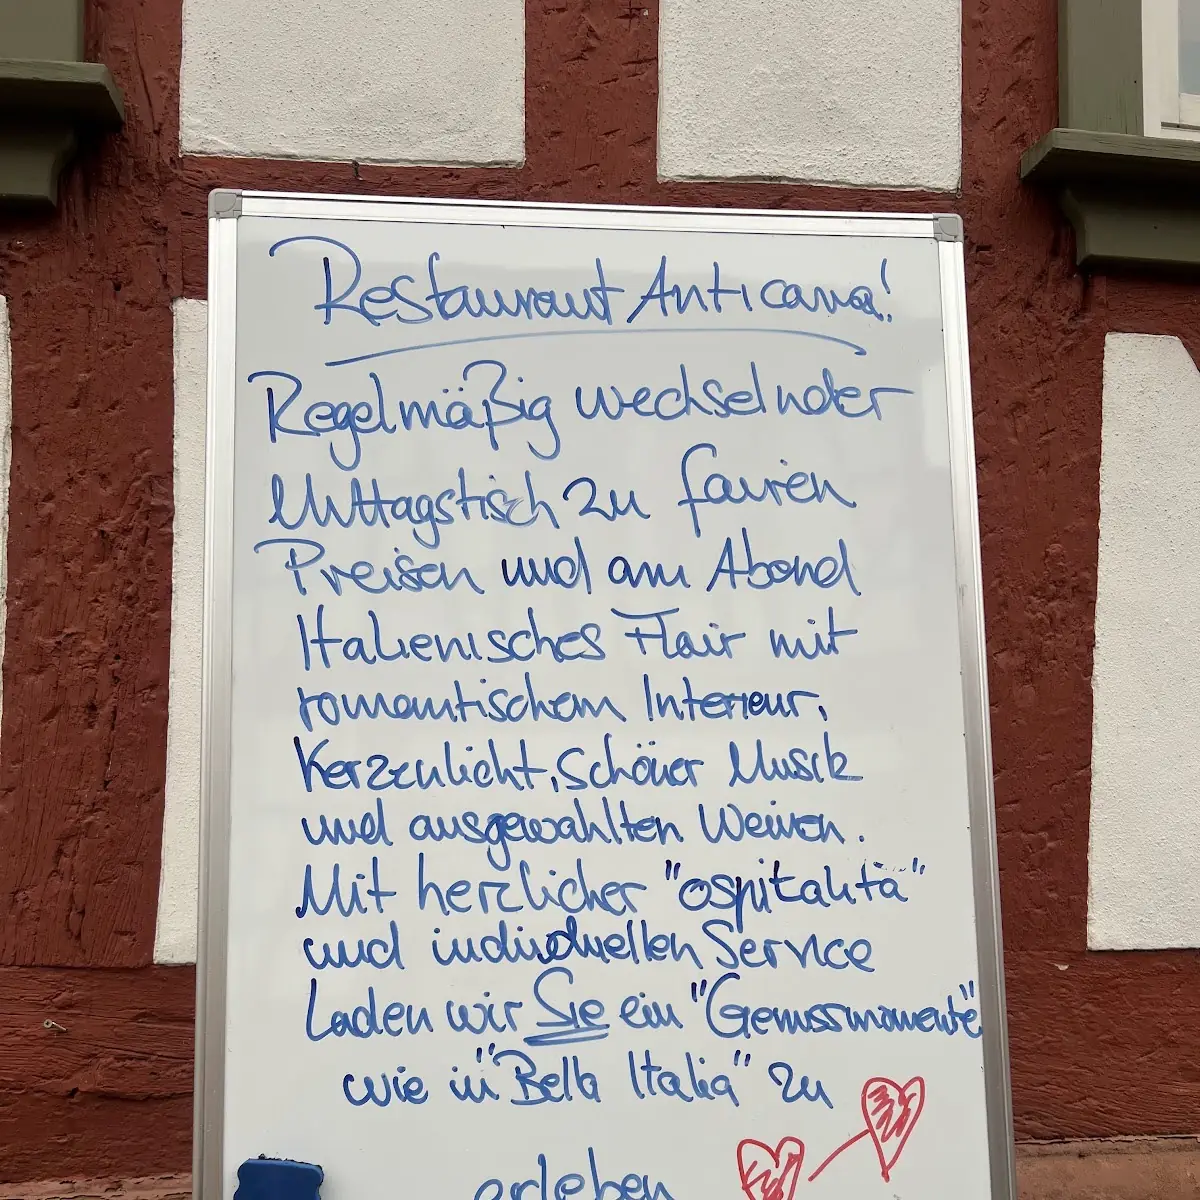 Restaurant Anticama!
Regelmäßig wechselnder
Mittagstisch zu fairen
Preisen und am Abend
Italienisches Flair mit
romantischem Interieur,
Kerzenlicht, schöner Musik
und ausgewählten Weinen.
Mit herzlicher "ospitalità"
und individuellen Service
Laden wir Sie ein "Genussmomente"
wie in "Bella Italia" zu
erleben